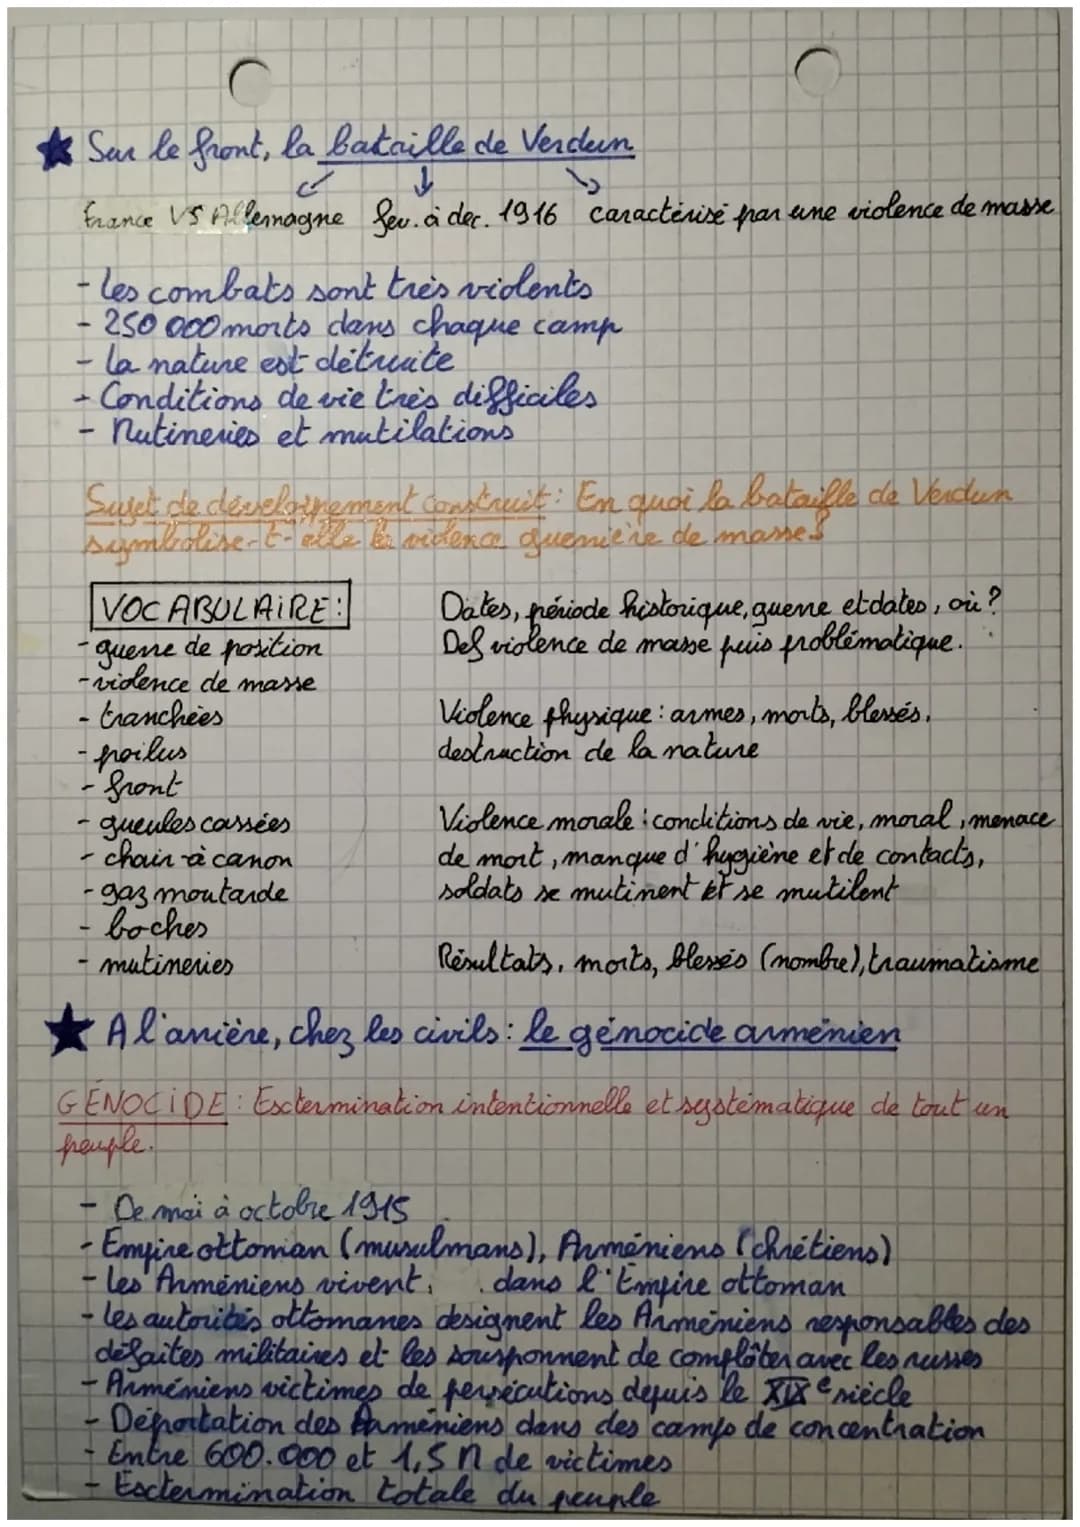 Sur le front, la bataille de Verdun
France VS Allemagne fev. à dec. 1916 caractérisé par une violence de masse
- les combats sont très violents
- 250 000 morts dans chaque camp
- la nature est détruite
- Conditions de vie très difficiles
- Mutineries et mutilations
Sujet de développement construit : En quoi la bataille de Verdun
symbolise-t-elle la violence guerrière de masse ?
VOCABULAIRE :
- guerre de position
- violence de masse
- tranchées
- poilus
- front
- gueules cassées
- chair à canon
- gaz moutarde
- boches
- mutineries
Dates, période historique, guerre et dates, où ?
Def violence de masse puis problématique.
Violence physique : armes, morts, blessés,
destruction de la nature
Violence morale : conditions de vie, moral, menace
de mort, manque d'hygiène et de contacts,
soldats se mutinent et se mutilent
Résultats, morts, blessés (nombre), traumatisme
A l'arrière, chez les civils : le génocide arménien
GÉNOCIDE : Extermination intentionnelle et systématique de tout un
peuple.
- De mai à octobre 1915
- Empire ottoman (musulmans), Arméniens (chrétiens)
- Les Arméniens vivent dans l'Empire ottoman
- les autorités ottomanes designent les Arméniens responsables des
défaites militaires et les sousponnent de complôter avec les russes
- Arméniens victimes de persécutions depuis le XIXe siècle
- Déportation des Arméniens dans des camps de concentration
- Entre 600.000 et 1,5 M de victimes
- Extermination totale du peuple